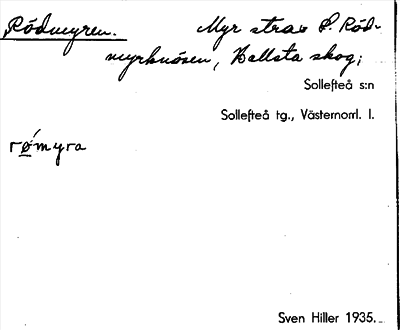 Rödmyren. Myr strax S. Röd-
myrknösen, Hallsta skog;
Sollefteå s:n
Sollefteå tg., Västernorrl. l.
rø´myra
Sven Hiller 1935.